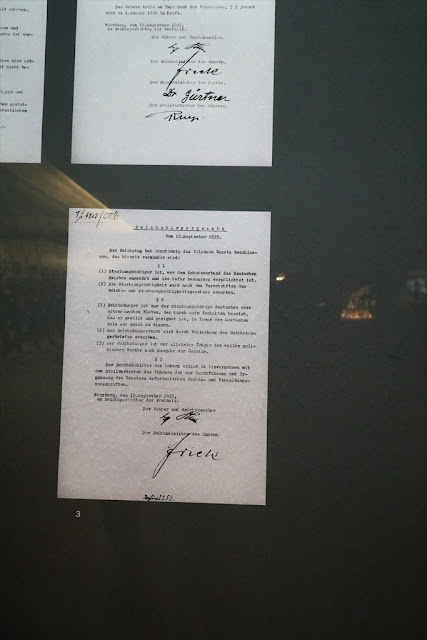 Das Gesetz tritt am Tage nach der Verkündung, § 3 jedoch
erst am 1.Januar 1936 in Kraft.
Nürnberg, den 15.September 1935,
am Reichsparteitag der Freiheit.
Der Führer und Reichskanzler
Der Reichsminister des Innern.
Frick
Der Reichsminister der Justiz.
Dr. Gürtner
Der Stellvertreter des Führers.
Reichsbürgergesetz
Vom 15.September 1935.
Der Reichstag hat einstimmig das folgende Gesetz beschlos-
sen, das hiermit verkündet wird:
§ 1
(1) Staatsangehöriger ist, wer dem Schutzverband des Deutschen
Reiches angehört und ihm dafür besonders verpflichtet ist.
(2) Die Staatsangehörigkeit wird nach den Vorschriften des
Reichs- und Staatsangehörigkeitsgesetzes erworben.
§ 2
(1) Reichsbürger ist nur der Staatsangehörige deutschen oder
artverwandten Blutes, der durch sein Verhalten beweist,
das er gewillt und geeignet ist, in Treue dem Deutschen
Volk und Reich zu dienen.
(2) Das Reichsbürgerrecht wird durch Verleihung des Reichsbür-
gerbriefes erworben.
(3) Der Reichsbürger ist der alleinige Träger der vollen poli-
tischen Rechte nach Massgabe der Gesetze.
§ 3
Der Reichsminister des Innern erlässt im Einvernehmen mit
dem Stellvertreter des Führers die zur Durchführung und Er-
gänzung des Gesetzes erforderlichen Rechts- und Verwaltungs-
vorschriften.
Nürnberg, den 15.September 1935,
am Reichsparteitag der Freiheit.
Der Führer und Reichskanzler
Der Reichsminister des Innern.
Frick
3